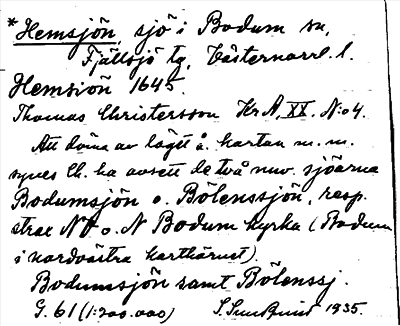 *Hemsjön, sjö i Bodum sn,
Fjällsjö tg, Västernorrl. l.
Hemsiön 1645.
Thomas Christersson Kr A, XX. N:o 4.
Att döma av läget å kartan m. m.
synes Ch. ha avsett de två nuv. sjöarna
Bodumsjön o. Bölenssjön, resp.
strax NV o. N Bodum kyrka (Bodum
i nordvästra karthörnet).
Bodumsjön samt Bölenssj.
G. 61 (1:200.000) 1935.